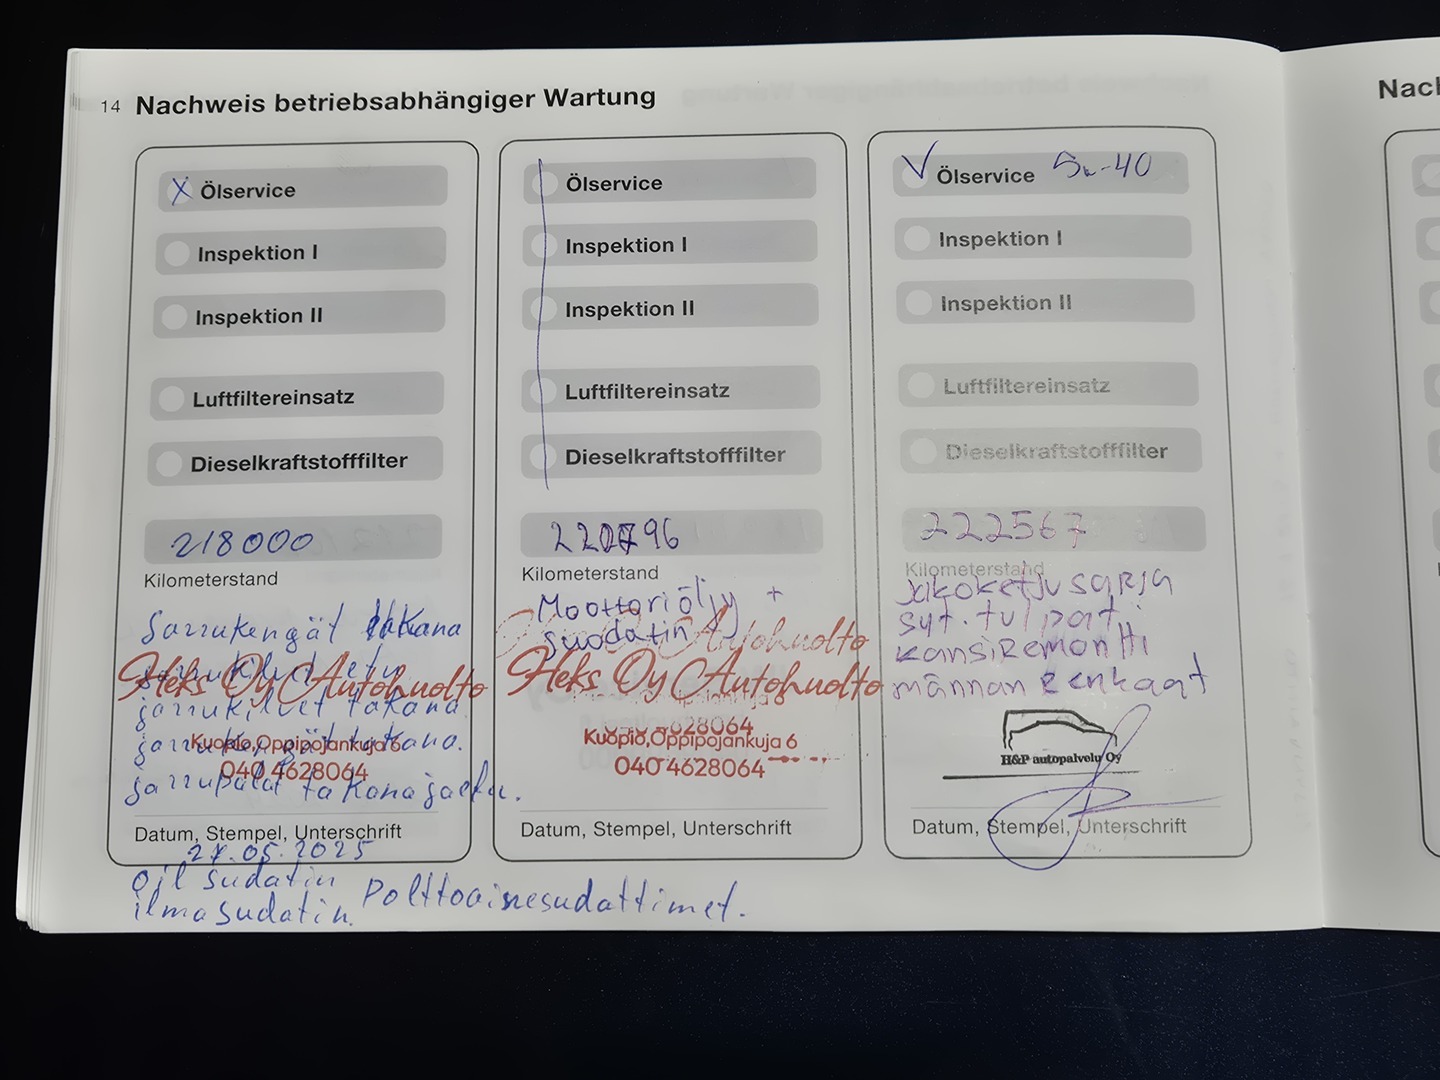 14 Nachweis betriebsabhängiger Wartung
X Ölservice
Inspektion I
Inspektion II
Luftfiltereinsatz
Dieselkraftstofffilter
218000
Kilometerstand
Jarrukengät takana
jarrukilvet takana
Heks Oy Autohuolto
Kuopio,Oppipojankuja 6
040 4628064
jarrupalat takana ja etu.
Datum, Stempel, Unterschrift
27.05.2025
oil sudatin
ilmasudatin. Polttoainesudattimet.
Ölservice
Inspektion I
Inspektion II
Luftfiltereinsatz
Dieselkraftstofffilter
220796
Kilometerstand
Moottoriöljy +
suodatin
Autohuolto
Heks Oy Autohuolto
4628064
Kuopio,Oppipojankuja 6
040 4628064
Datum, Stempel, Unterschrift
Ölservice 5w-40
Inspektion I
Inspektion II
Luftfiltereinsatz
Dieselkraftstofffilter
222567
Kilometerstand
Jakoketju sarja
syt. tulpat
kansiremontti
männän renkaat
H&P autopalvelu Oy
Datum, Stempel, Unterschrift
Nach